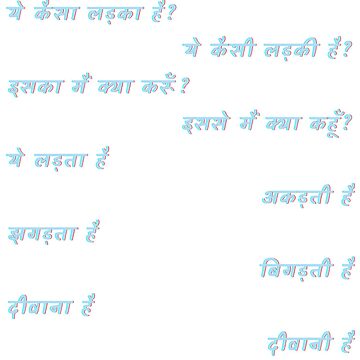 ये कैसा लड़का है?
ये कैसी लड़की है?
इसका मैं क्या करूँ?
इससे मैं क्या कहूँ?
ये लड़ता है
अकड़ती है
झगड़ता है
बिगड़ती है
दीवाना है
दीवानी है